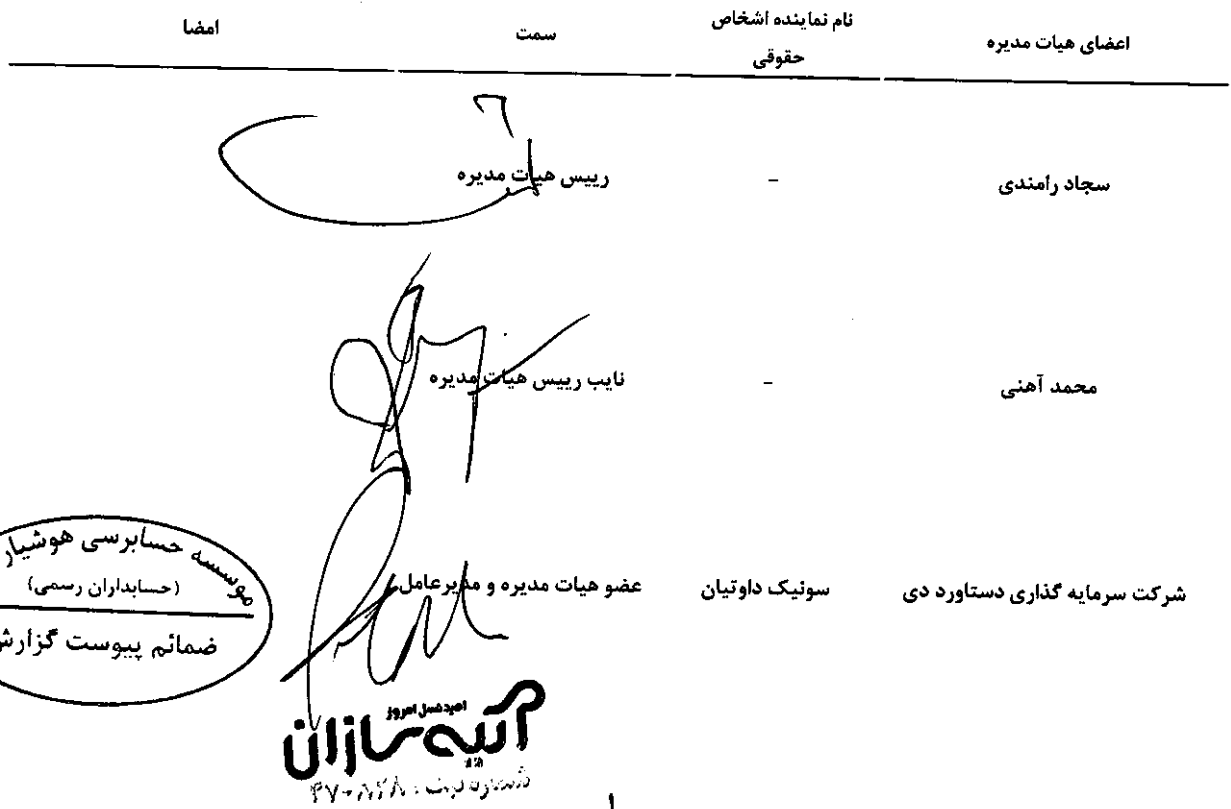 اعضای هیات مدیره
نام نماینده اشخاص
حقوقی
سمت
امضا
سجاد رامندی
–
رییس هیات مدیره
محمد آهنی
–
نایب رییس هیات مدیره
شرکت سرمایه گذاری دستاورد دی
سونیک داوتیان
عضو هیات مدیره و مدیرعامل
موسسه حسابرسی هوشیار
(حسابداران رسمی)
ضمائم پیوست گزارش
امید نسل امروز
آتیه سازان
شماره ثبت :
۱